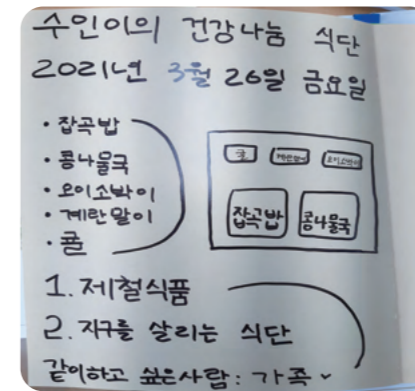 수인이의 건강나눔 식단
2021년 3월 26일 금요일
· 잡곡밥
· 콩나물국
· 오이소박이
· 계란말이
· 귤
귤 계란말이 오이소박이
잡곡밥 콩나물국
1. 제철식품
2. 지구를 살리는 식단
같이하고 싶은사람: 가족